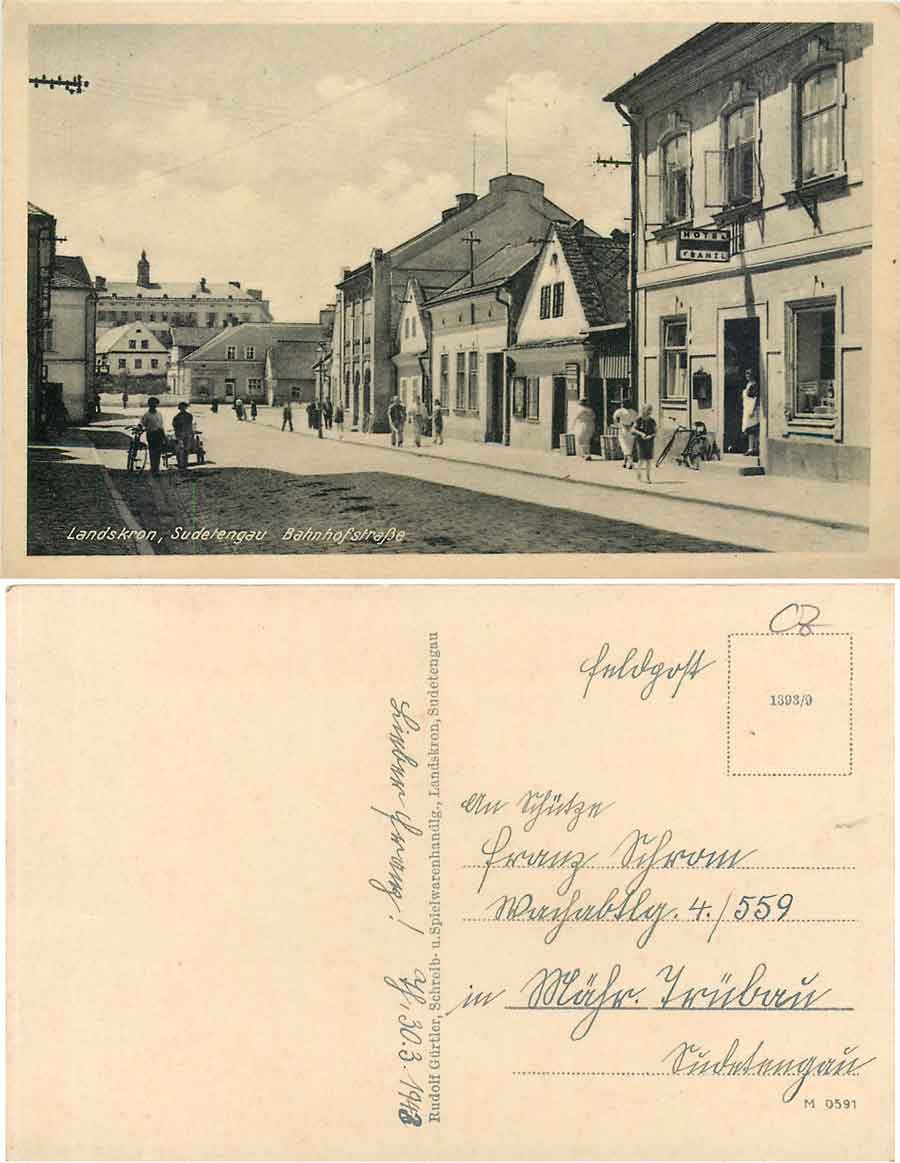 HOTEL
FRANZL
Landskron, Sudetengau Bahnhofstraße
CZ
Feldpost
1393/9
An Schütze
Franz Schrom
Wachabtlg. 4./559
in Mähr. Trübau
Sudetengau
M 0591
Rudolf Gürtler, Schreib- u. Spielwarenhandlg., Landskron, Sudetengau
Lieber Franz! 30.3.1943